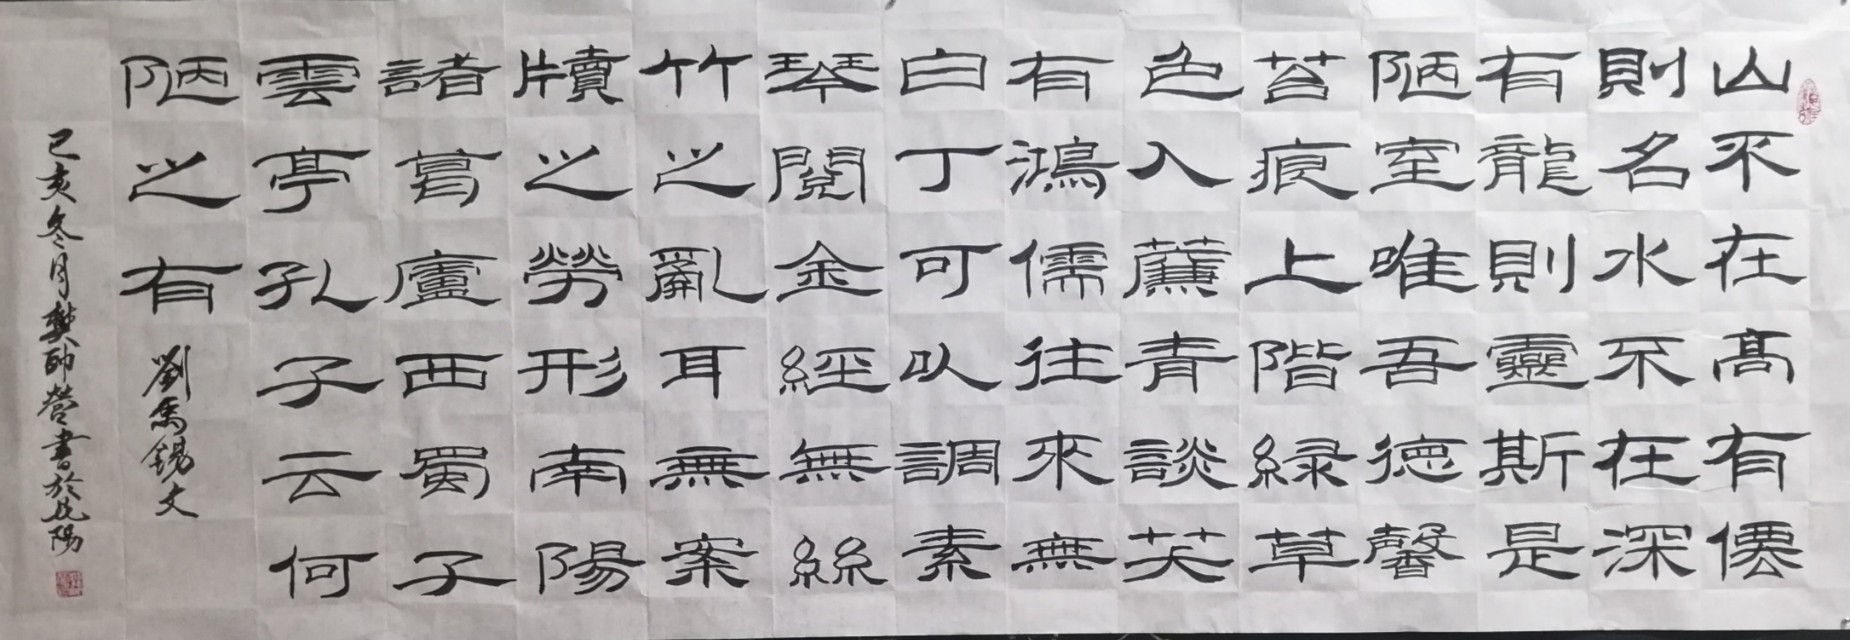 山不在高有僊
則名水不在深
有龍則靈斯是
陋室唯吾德馨
苔痕上階緑草
色入薕青談笑
有鴻儒往來無
白丁可以調素
琴閱金經無絲
竹之亂耳無案
牘之勞形南陽
諸葛廬西蜀子
雲亭孔子云何
陋之有 劉禹錫文
己亥冬月樊帥營書於陽